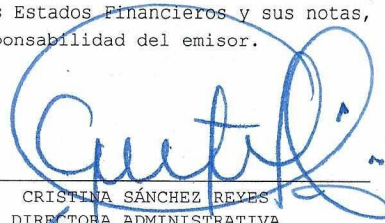 s Estados Financieros y sus notas,
ponsabilidad del emisor.
CRISTINA SÁNCHEZ REYES
DIRECTORA ADMINISTRATIVA